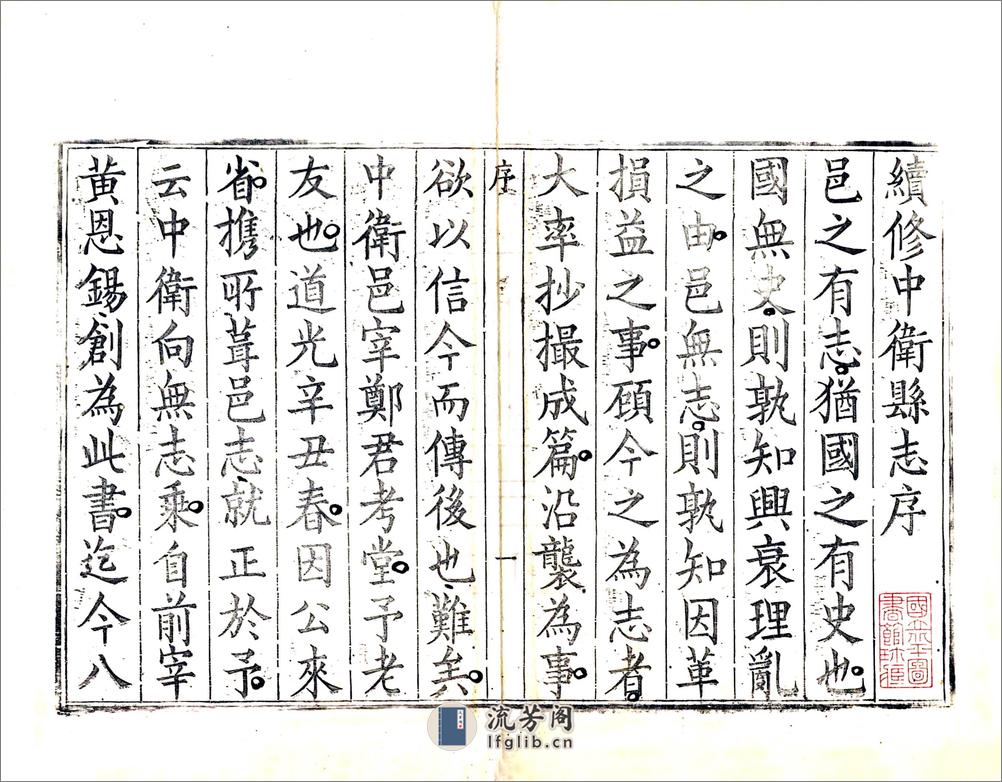 續修中衛縣志序
邑之有志。猶國之有史也。
國無史。則孰知興衰理亂
之由。邑無志。則孰知因革
損益之事。顧今之為志者。
大率抄撮成篇。沿襲為事。
序 一
欲以信今而傳後也、難矣。
中衛邑宰鄭君考堂。予老
友也。道光辛丑春。因公來
省。携所葺邑志、就正於予。
云中衛向無志乘。自前宰
黃恩錫、創為此書。迄今八
國立北平圖書館珍藏
流芳阁
lfglib.cn